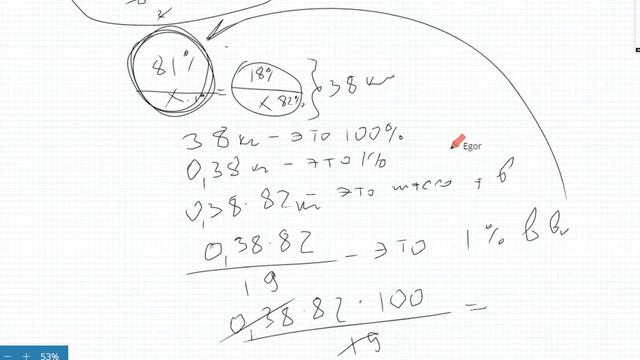 81%
18%
X
X 82%
=
38 кг
38 кг - это 100%
Egor
0,38 кг - это 1%
0,38 · 82 кг это
0,38 · 82
19
- это 1% в
0,38 · 82 · 100
19
=
- + 53%